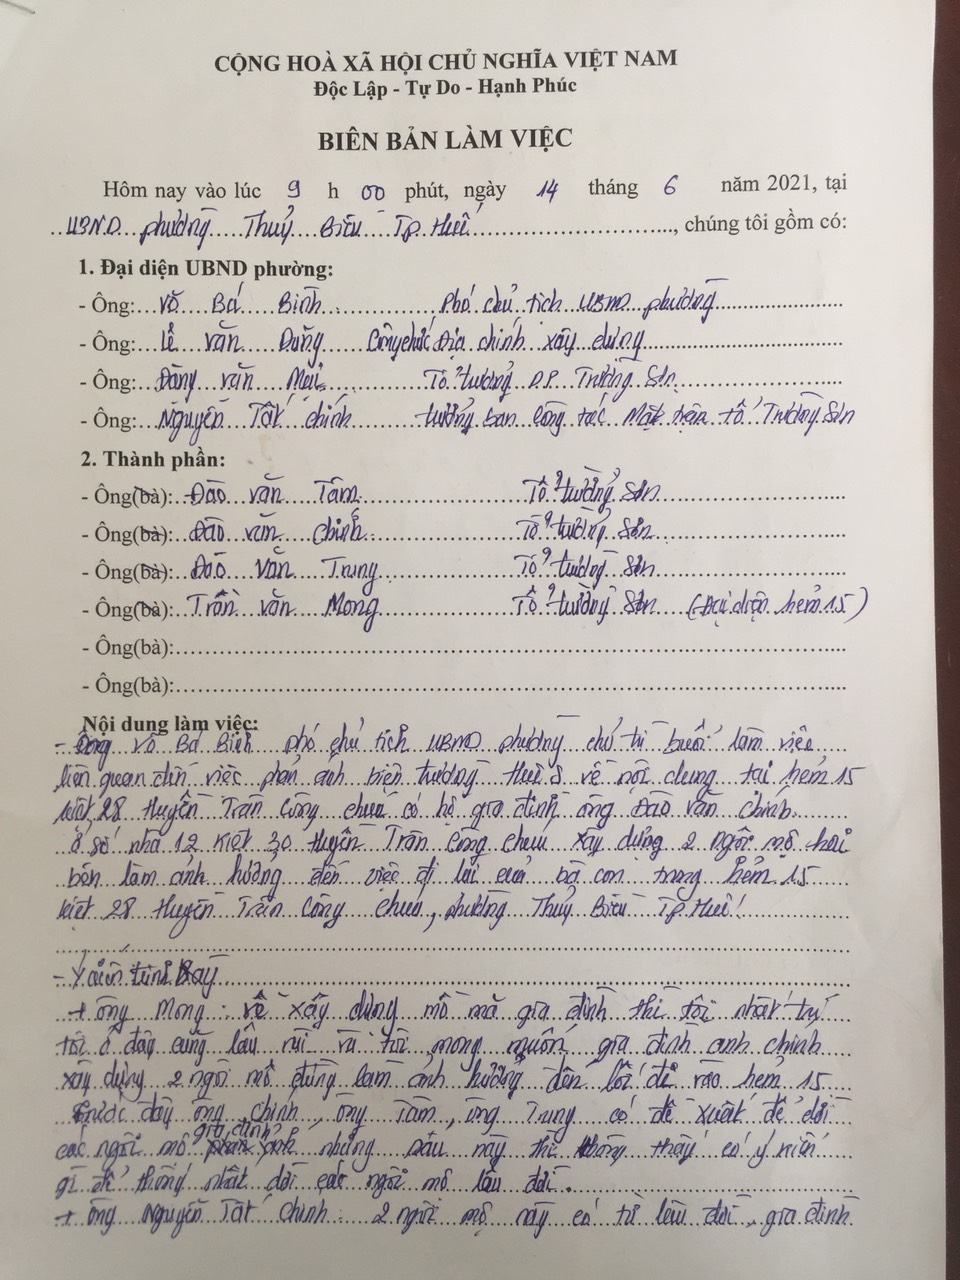 CỘNG HOÀ XÃ HỘI CHỦ NGHĨA VIỆT NAM
Độc Lập - Tự Do - Hạnh Phúc
BIÊN BẢN LÀM VIỆC
Hôm nay vào lúc 9 h 00 phút, ngày 14 tháng 6 năm 2021, tại
UBND phường Thuỷ Biều Tp Huế, chúng tôi gồm có:
1. Đại diện UBND phường:
- Ông: Võ Bá Bình Phó chủ tịch UBND phường
- Ông: Lê Văn Dũng Công chức Địa chính xây dựng
- Ông: Đặng Văn Mại Tổ trưởng DP Trường Sơn
- Ông: Nguyễn Tất Chính trưởng ban công tác Mặt trận tổ Trường Sơn
2. Thành phần:
- Ông(bà): Đào Văn Tâm Tổ trường Sơn
- Ông(bà): Đào Văn Chính Tổ trường Sơn
- Ông(bà): Đào Văn Trung Tổ trường Sơn
- Ông(bà): Trần Văn Mong Tổ trường Sơn (Đại diện hẻm 15)
- Ông(bà):
- Ông(bà):
Nội dung làm việc:
- Ông Võ Bá Bình phó chủ tịch UBND phường chủ trì buổi làm việc
liên quan đến việc phản ánh hiện trường Huế S về nội dung tại hẻm 15
kiệt 28 Huyền Trân Công chúa có hộ gia đình ông Đào văn Chính
ở số nhà 12 kiệt 30 Huyền Trân Công chúa xây dựng 2 ngôi mộ hai
bên làm ảnh hưởng đến việc đi lại của bà con trong hẻm 15
kiệt 28 Huyền Trân Công chúa, phường Thuỷ Biều Tp Huế!
- Ý kiến trình bày
+ ông Mong: về xây dựng mồ mã gia đình thì tôi nhất trí
tôi ở đây cũng lâu rồi và tôi mong muốn gia đình anh chính
xây dựng 2 ngôi mộ đừng làm ảnh hưởng đến lối đi vào hẻm 15
trước đây ông chính, ông Tâm, ông Trung có đề xuất để dời
các ngôi mộ gia đình những sau này thì không thấy có ý kiến
gì để thống nhất dời các ngôi mộ lâu đời.
+ ông Nguyễn Tất Chính: 2 ngôi mộ này có từ lâu đời, gia đình